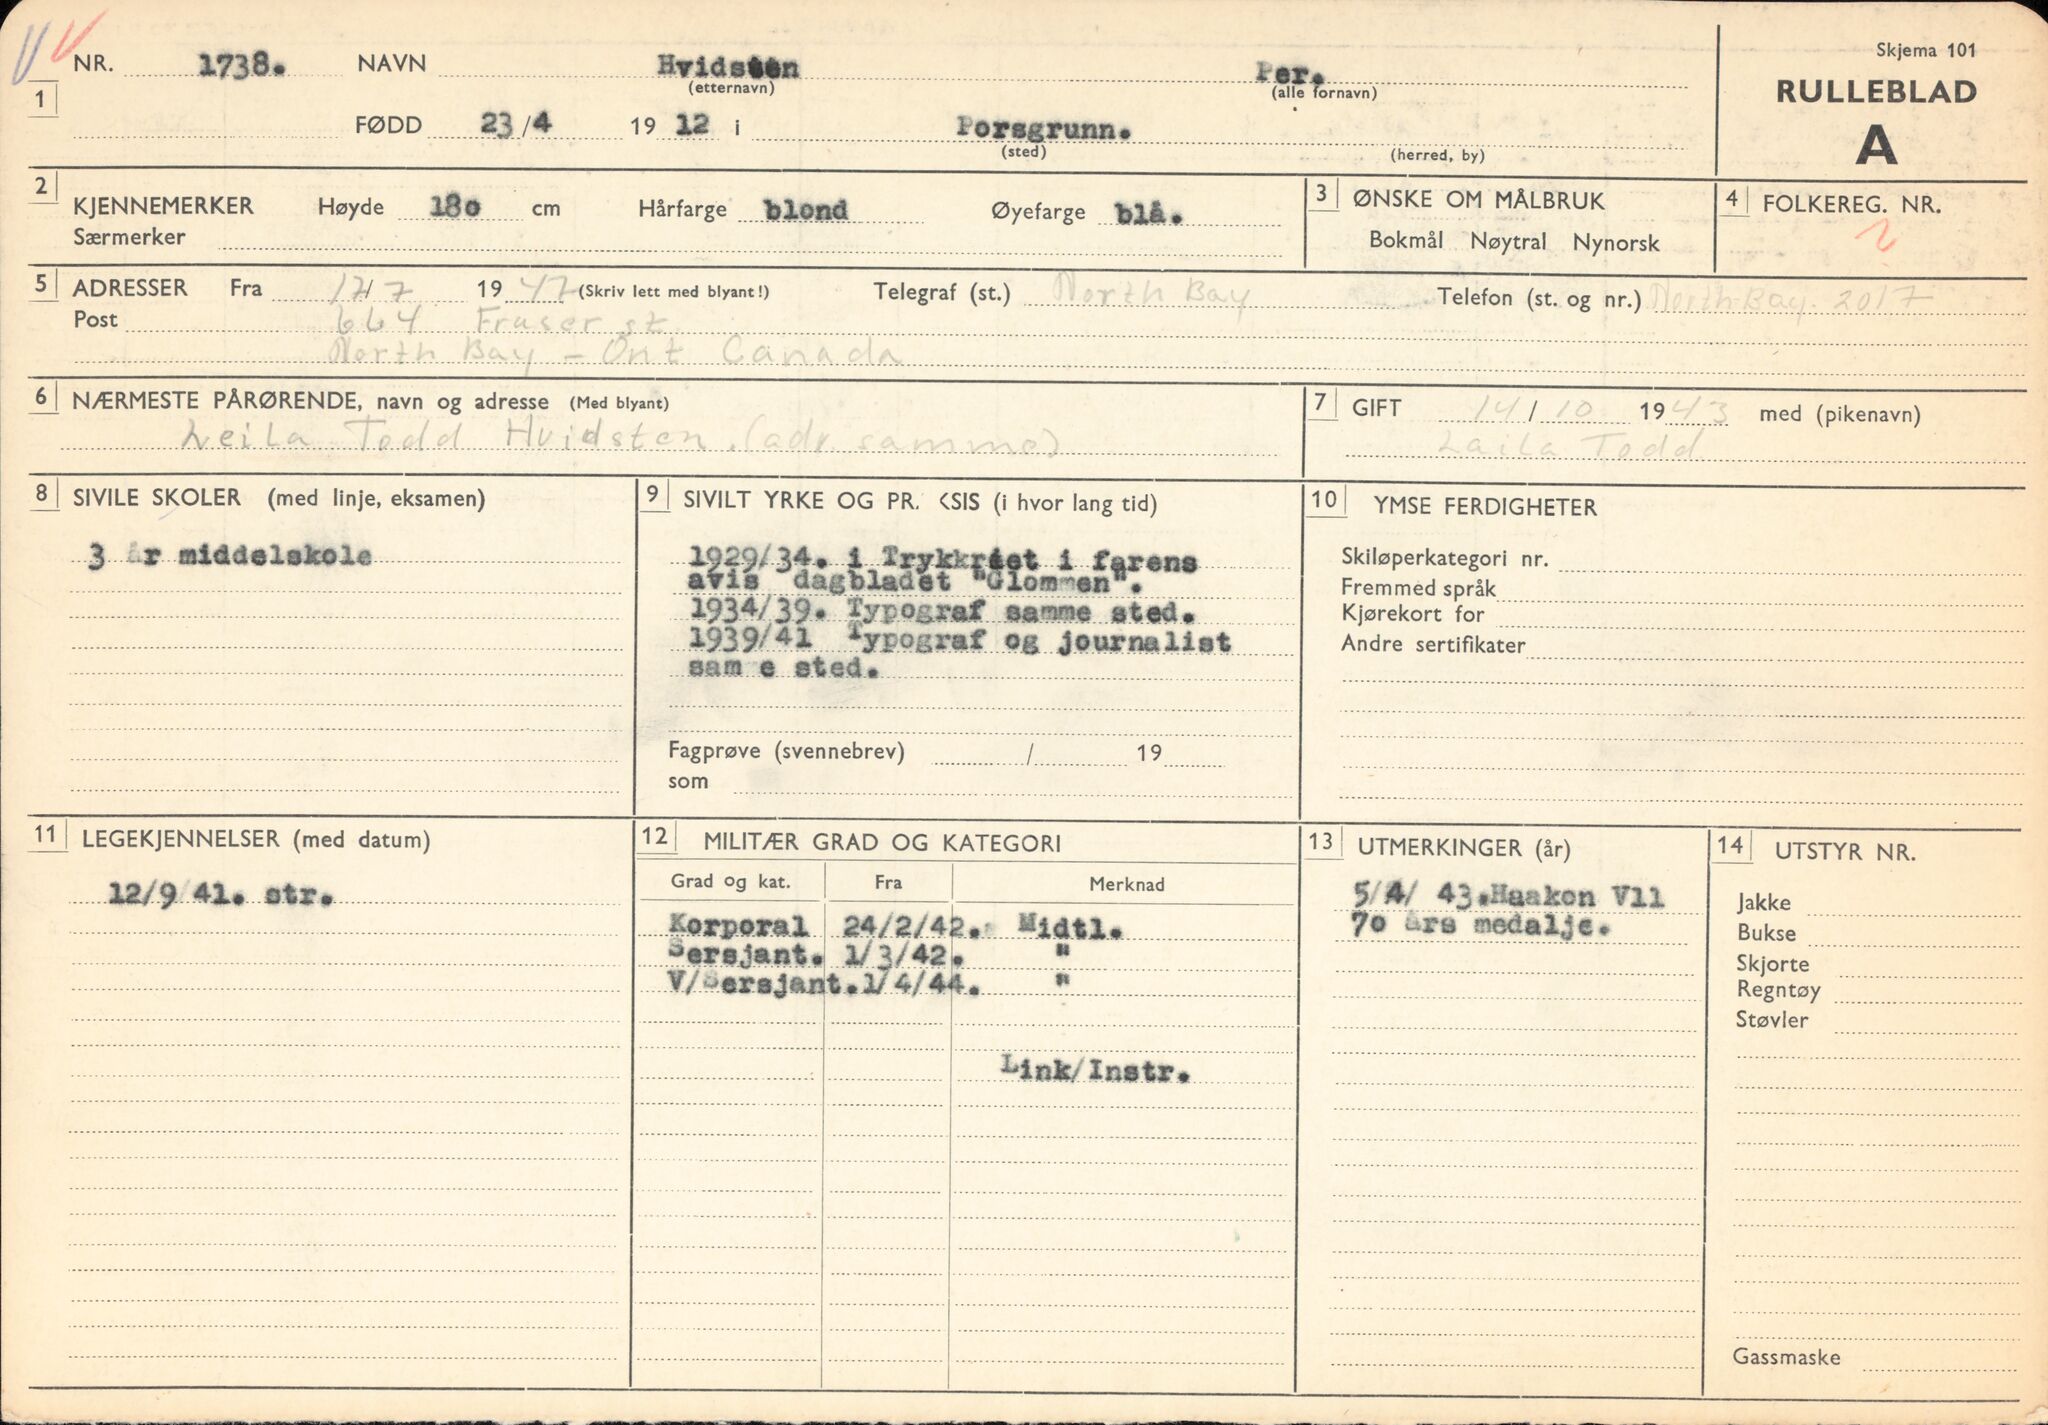 Skjema 101
RULLEBLAD
A
1 NR. 1738. NAVN Hvidsten Per.
(etternavn) (alle fornavn)
FØDD 23/4 1912 i Porsgrunn.
(sted) (herred, by)
2 KJENNEMERKER Høyde 180 cm Hårfarge blond Øyefarge blå.
Særmerker
3 ØNSKE OM MÅLBRUK
Bokmål Nøytral Nynorsk
4 FOLKEREG. NR.
5 ADRESSER Fra 17/7 1947 (Skriv lett med blyant!) Telegraf (st.) North Bay Telefon (st. og nr.) North Bay. 2017
Post 664 Fraser st
North Bay - Ont Canada
6 NÆRMESTE PÅRØRENDE, navn og adresse (Med blyant)
Leila Todd Hvidsten. (adr. samme)
7 GIFT 14/10 1943 med (pikenavn)
Laila Todd
8 SIVILE SKOLER (med linje, eksamen)
3 år middelskole
9 SIVILT YRKE OG PR. KSIS (i hvor lang tid)
1929/34. i Trykkriet i farens
avis dagbladet "Glommen".
1934/39. Typograf samme sted.
1939/41 Typograf og journalist
sam e sted.
Fagprøve (svennebrev) / 19
som
10 YMSE FERDIGHETER
Skiløperkategori nr.
Fremmed språk
Kjørekort for
Andre sertifikater
11 LEGEKJENNELSER (med datum)
12/9/41. str.
12 MILITÆR GRAD OG KATEGORI
Grad og kat. Fra Merknad
Korporal 24/2/42. Midtl.
Sersjant. 1/3/42. "
V/Sersjant. 1/4/44. "
Link/Instr.
13 UTMERKINGER (år)
5/4/ 43. Haakon V11
70 års medalje.
14 UTSTYR NR.
Jakke
Bukse
Skjorte
Regntøy
Støvler
Gassmaske